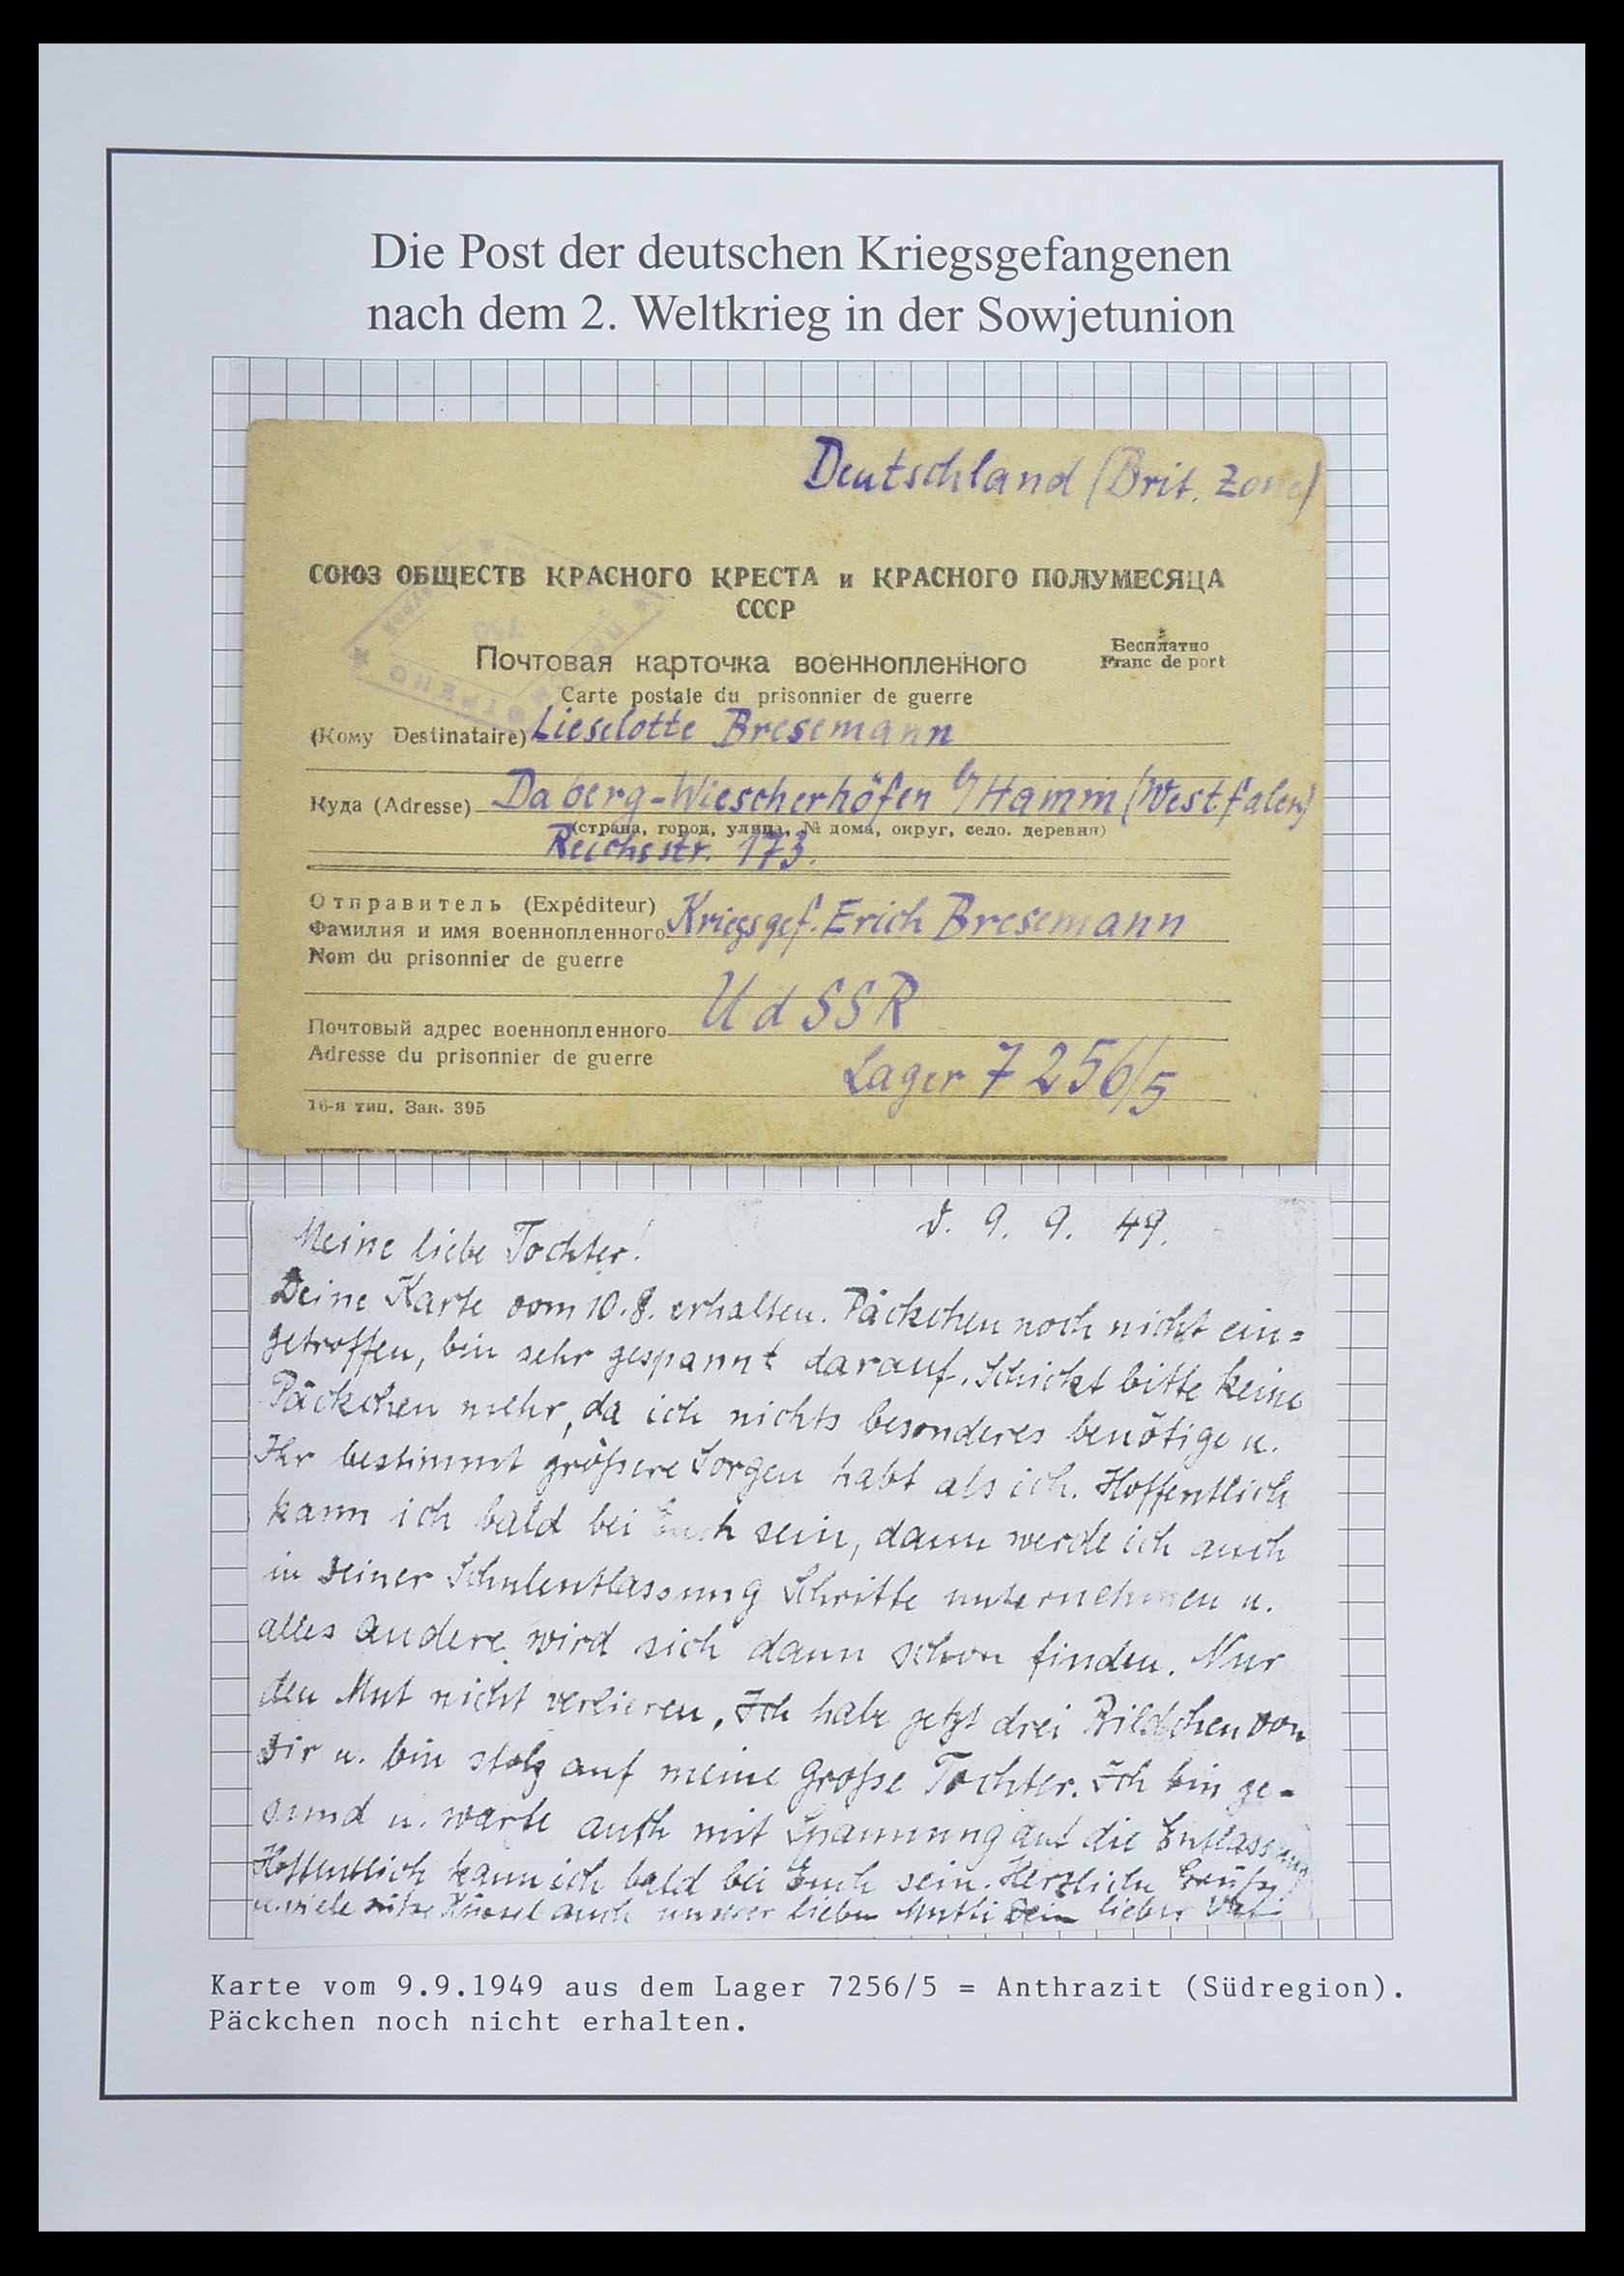 Die Post der deutschen Kriegsgefangenen
nach dem 2. Weltkrieg in der Sowjetunion
Deutschland (Brit. Zone)
СОЮЗ ОБЩЕСТВ КРАСНОГО КРЕСТА и КРАСНОГО ПОЛУМЕСЯЦА
СССР
Бесплатно
Franc de port
Почтовая карточка военнопленного
Carte postale du prisonnier de guerre
(Кому Destinataire) Lieselotte Bresemann
Куда (Adresse) Daberg-Wiescherhöfen b/Hamm (Westfalen)
(страна, город, улица, № дома, округ, село, деревня)
Reichsstr. 173.
Отправитель (Expéditeur)
Фамилия и имя военнопленного Kriegsgef. Erich Bresemann
Nom du prisonnier de guerre
UdSSR
Почтовый адрес военнопленного
Adresse du prisonnier de guerre
Lager 7256/5
16-я тип. Зак. 395
d. 9. 9. 49.
Meine liebe Tochter!
Deine Karte vom 10.8. erhalten. Päckchen noch nicht ein=
getroffen, bin sehr gespannt darauf. Schickt bitte keine
Päckchen mehr, da ich nichts besonderes benötige u.
Ihr bestimmt größere Sorgen habt als ich. Hoffentlich
kann ich bald bei Euch sein, dann werde ich auch
in Deiner Schulentlassung Schritte unternehmen u.
alles andere wird sich dann schon finden. Nur
den Mut nicht verlieren. Ich habe jetzt drei Bildchen von
Dir u. bin stolz auf meine große Tochter. Ich bin ge-
sund u. warte auch mit Spannung auf die Entlassung
Hoffentlich kann ich bald bei Euch sein. Herzliche Grüße
u. viele auch unserer lieben Mutti Dein lieber
Karte vom 9.9.1949 aus dem Lager 7256/5 = Anthrazit (Südregion).
Päckchen noch nicht erhalten.